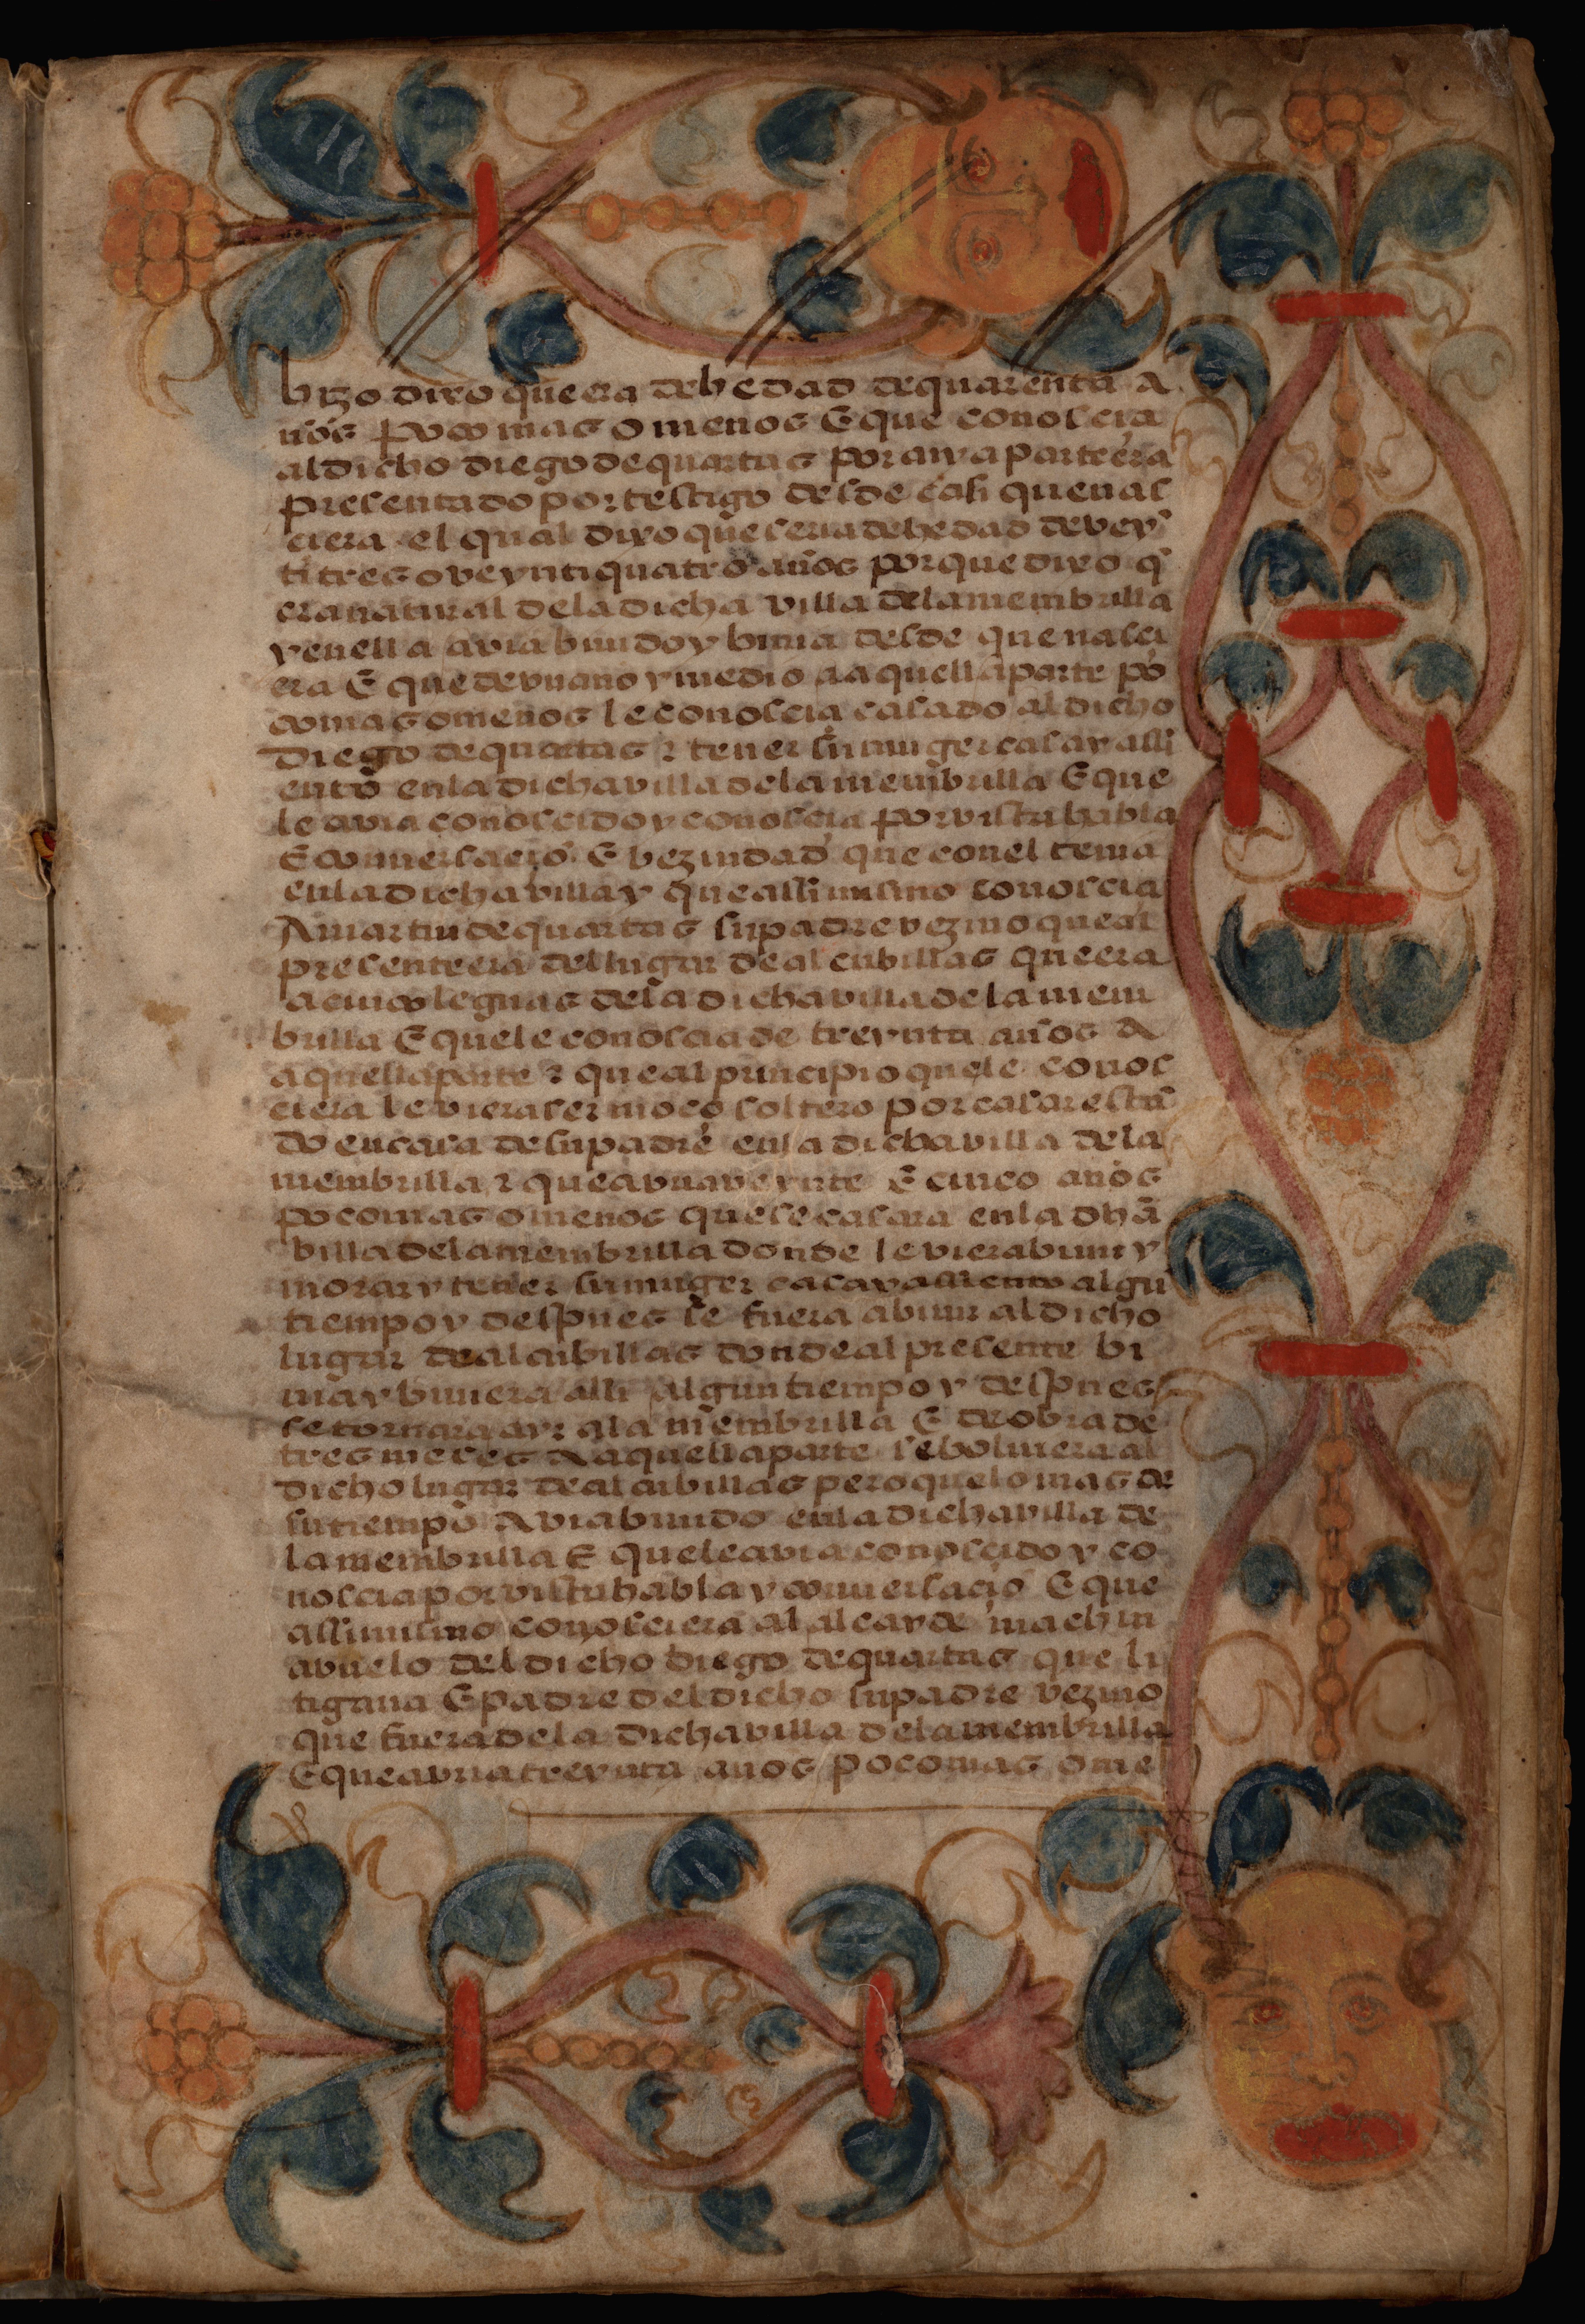 hizo dixo que era de hedad de quarenta a
ños poco mas o menos E que conoscia
al dicho diego de quartas por cuya parte era
presentado por testigo desde casi que nas
ciera el qual dixo que seria de hedad de vey̅
titres o veyntiquatro años porque dixo q̅
era natural de la dicha villa de la membrilla
y en ella avia biuido y biuia desde que nasci
era E que de vn año y medio a aquella parte po
co mas o menos le conoscia casado al dicho
Diego de quartas ⁊ tener su muger casa y alli
ento en la dicha villa de la membrilla E que
le avia conoscido y conoscia por vista habla
E conuersacio̅ E vezindad que con el tenia
en la dicha villa y que assimismo conoscia
A martin de quartas su padre vezino que al
presente era del lugar de alcubillas que era
a cinco leguas de la dicha villa de la mem
brilla E que le conoscia de treynta años A
aquella parte ⁊ que al principio que le conos
ciera le viera ser moço soltero por casar esta̅
do en casa de su padre en la dicha villa de la
membrilla ⁊ que avria veynte E cinco años
poco mas o menos que se casara en la dha̅
villa de la membrilla donde le viera biuir y
morar y tener su muger casa y assiento algu̅
tiempo y despues se fuera a biuir al dicho
lugar de alcubillas donde al presente bi
uia y biuiera alli algun tiempo y despues
se tornara a yr a la membrilla E de obra de
tres meses A aquella parte se boluiera al
dicho lugar de alcubillas pero que lo mas de
su tiempo Avia biuido en la dicha villa de
la membrilla E que le avia conoscido y co
noscia por vista habla y conuersacio̅ E que
assimismo conosciera al alcayde machin
abuelo del dicho Diego de quartas que li
tigaua E padre del dicho su padre vezino
que fuera de la dicha villa de la membrilla
E que avria treynta años poco mas o me